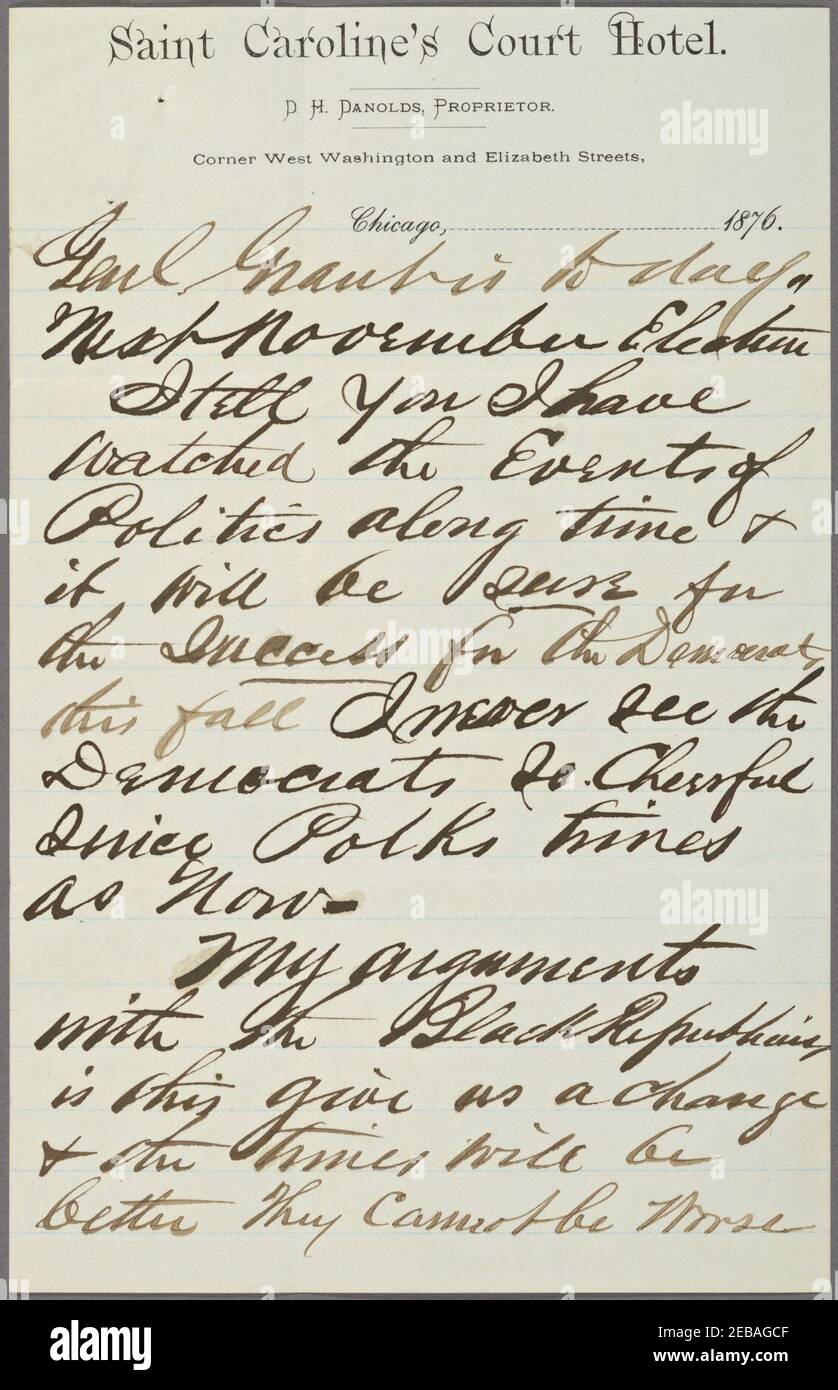 Saint Caroline's Court Hotel.
D. H. DANOLDS, PROPRIETOR.
Corner West Washington and Elizabeth Streets,
Chicago, 1876.
Genl. Grant is to day "
Next November Election
I tell you I have
watched the Events of
Politics along time &
it will be sure for
the Success for the Democrats
this fall I never see the
Democrats so Cheerful
since Polks times
as Now-
My arguments
with the Black Republicans
is this give us a change
& the times will be
better They Cannot be Worse
alamy
Image ID: 2EBAGCF
www.alamy.com